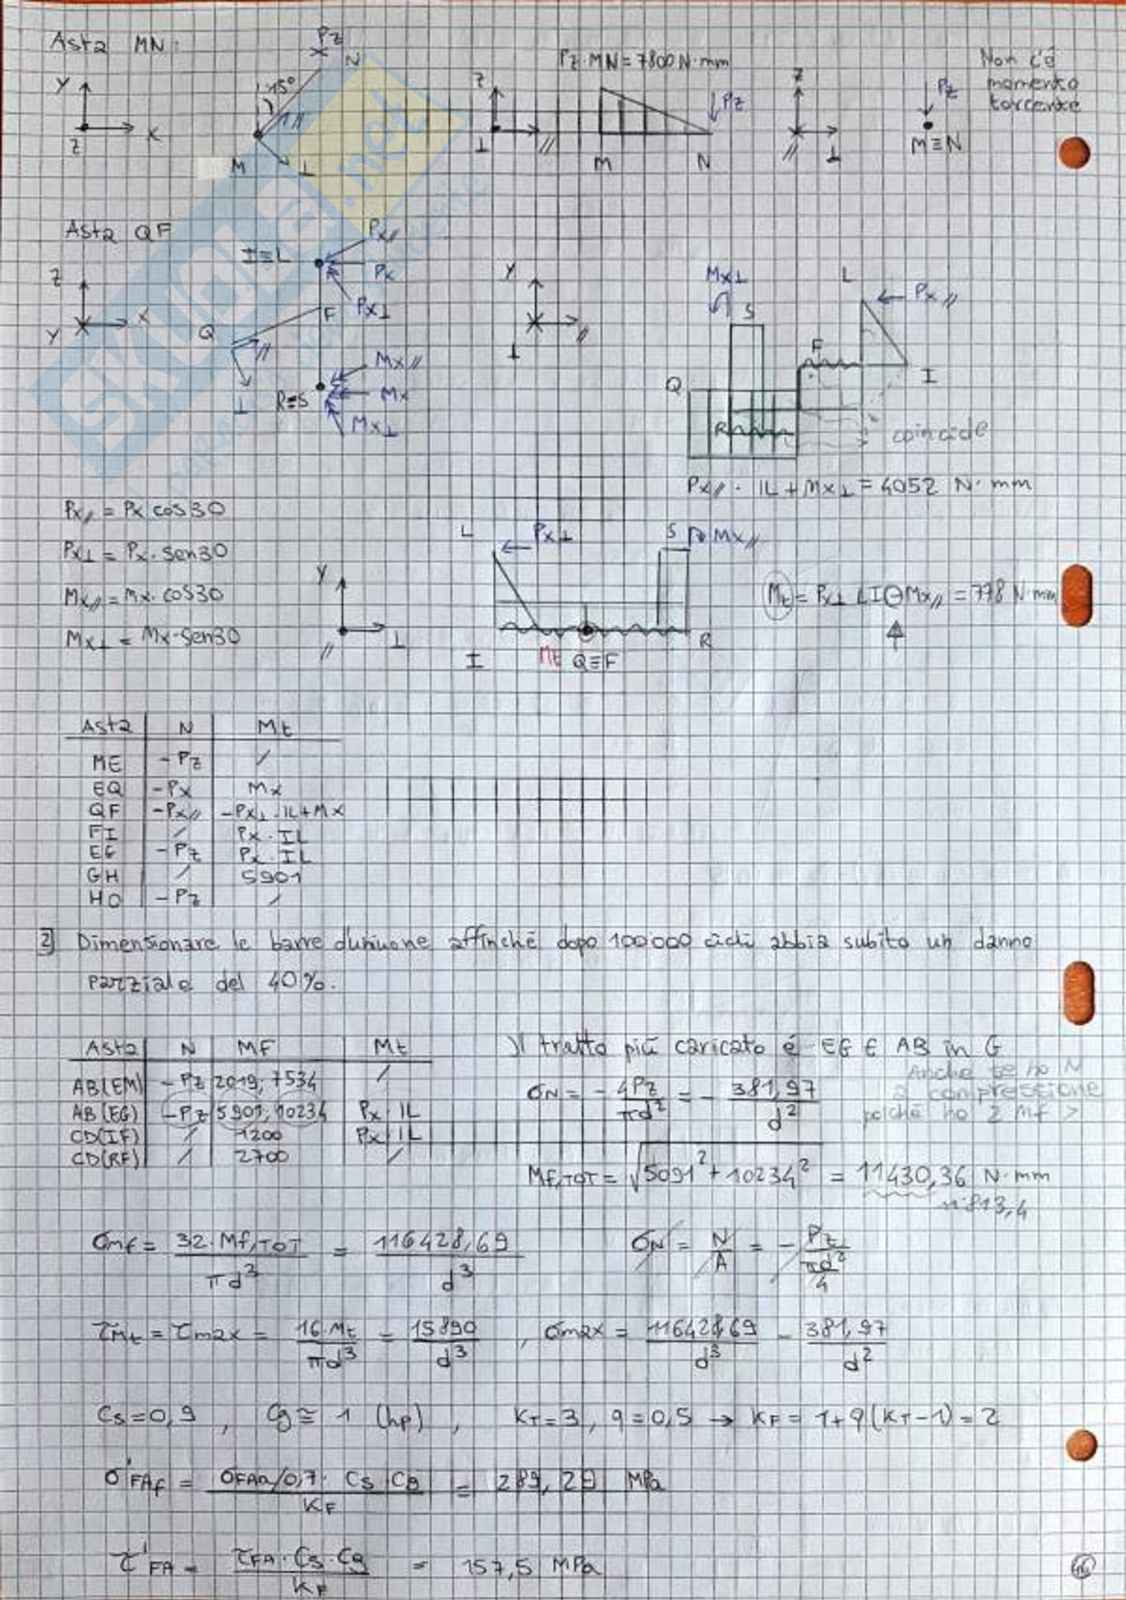 Asta MN:
Pz
N
Y
15°
//
X
Z
M
⊥
Z
Pz·MN = 7800 N·mm
Pz
⊥
//
M
N
Z
//
⊥
Pz
M≡N
Non c'è
momento
torcente
Asta QF
I≡L
Px//
Px
Px⊥
Z
X
Y
Q
F
//
⊥
R≡S
Mx//
Mx
Mx⊥
Y
//
⊥
Mx⊥
S
L
Px//
F
I
Q
R
coincide
Px// · IL + Mx⊥ = 4052 N·mm
Px// = Px cos30
Px⊥ = Px · sen30
Mx// = Mx · cos30
Mx⊥ = Mx · sen30
Y
//
⊥
L
Px⊥
S
Mx//
I
Mt
Q≡F
R
Mt = Px⊥ LI ⊖ Mx// = 778 N·mm
Asta N Mt
ME -Pz /
EQ -Px Mx
QF -Px// -Px⊥·IL+Mx
FI / Px·IL
EG -Pz Px·IL
GH / 5901
HO -Pz /
2] Dimensionare le barre d'unione affinchè dopo 100000 cicli abbia subito un danno
parziale del 40%.
Asta N MF Mt
AB(EM) -Pz 2019; 7534 /
AB(EG) -Pz 5901; 10234 Px·IL
CD(IF) / 1200 Px·IL
CD(RF) / 2700 /
Il tratto più caricato è EG ∈ AB in G
Anche se ho N
a compressione
poichè ho 2 Mf >
σN = - 4Pz / πd² = - 381,97 / d²
Mf,TOT = √5091² + 10234² = 11430,36 N·mm
11813,4
σMf = 32·Mf,TOT / πd³ = 116428,69 / d³
σN = N / A = - Pz / πd²/4
τMt = τmax = 16·Mt / πd³ = 15890 / d³ , σmax = 116428,69 / d³ - 381,97 / d²
Cs = 0,9 , Cg ≅ 1 (hp) , KT = 3 , q = 0,5 → KF = 1+q(KT-1) = 2
σ'FAf = σFAa/0,7 · Cs · Cg / KF = 289,29 MPa
τ'FA = τFA · Cs · Cg / KF = 157,5 MPa